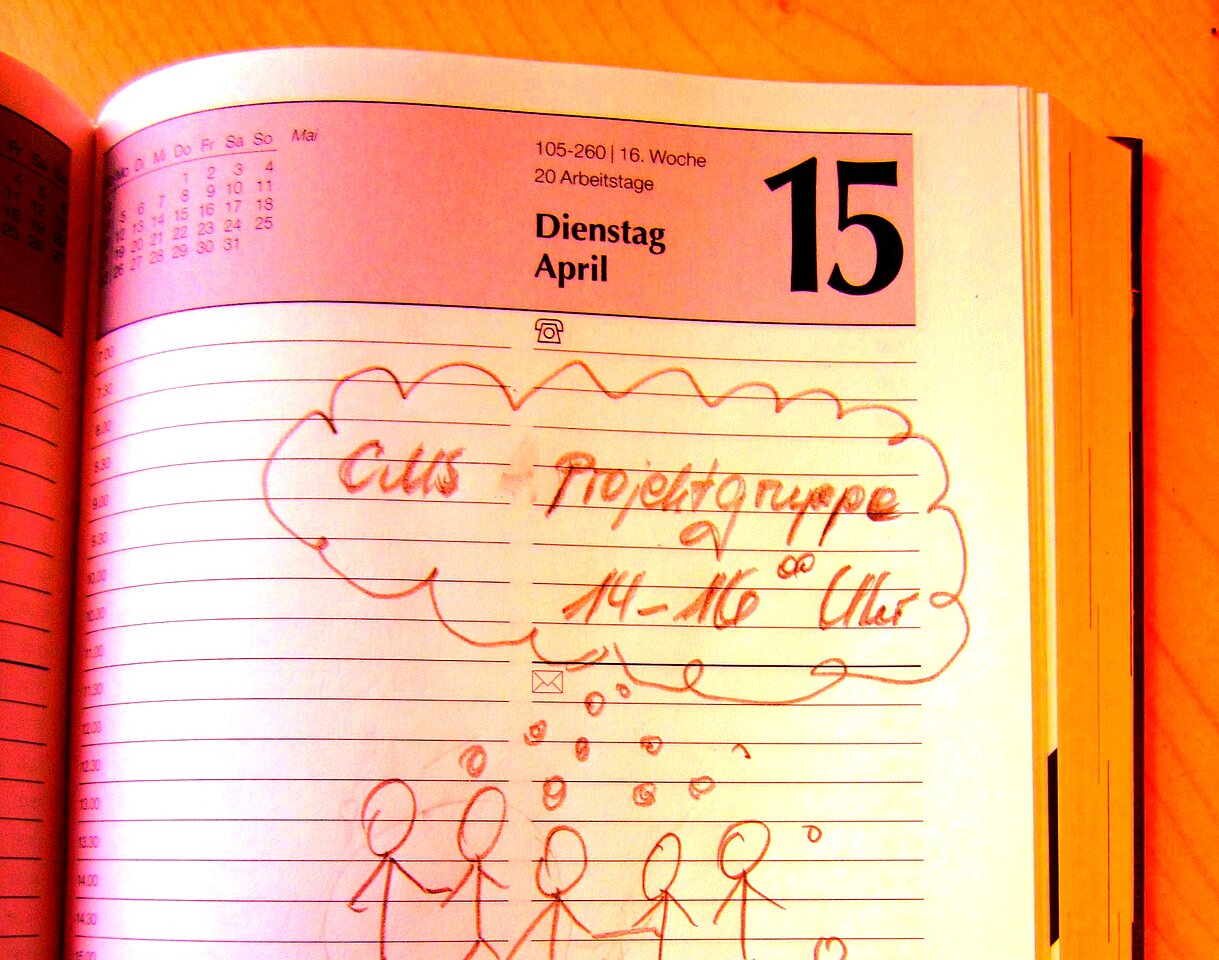 Mo Di Mi Do Fr Sa So Mai
1 2 3 4
5 6 7 8 9 10 11
12 13 14 15 16 17 18
19 20 21 22 23 24 25
26 27 28 29 30 31
105-260 | 16. Woche
20 Arbeitstage
Dienstag
April
15
7.00
7.30
8.00
8.30
9.00
9.30
10.00
10.30
11.00
11.30
12.00
12.30
13.00
13.30
14.00
14.30
15.00
CMS - Projektgruppe
14-16 00 Uhr